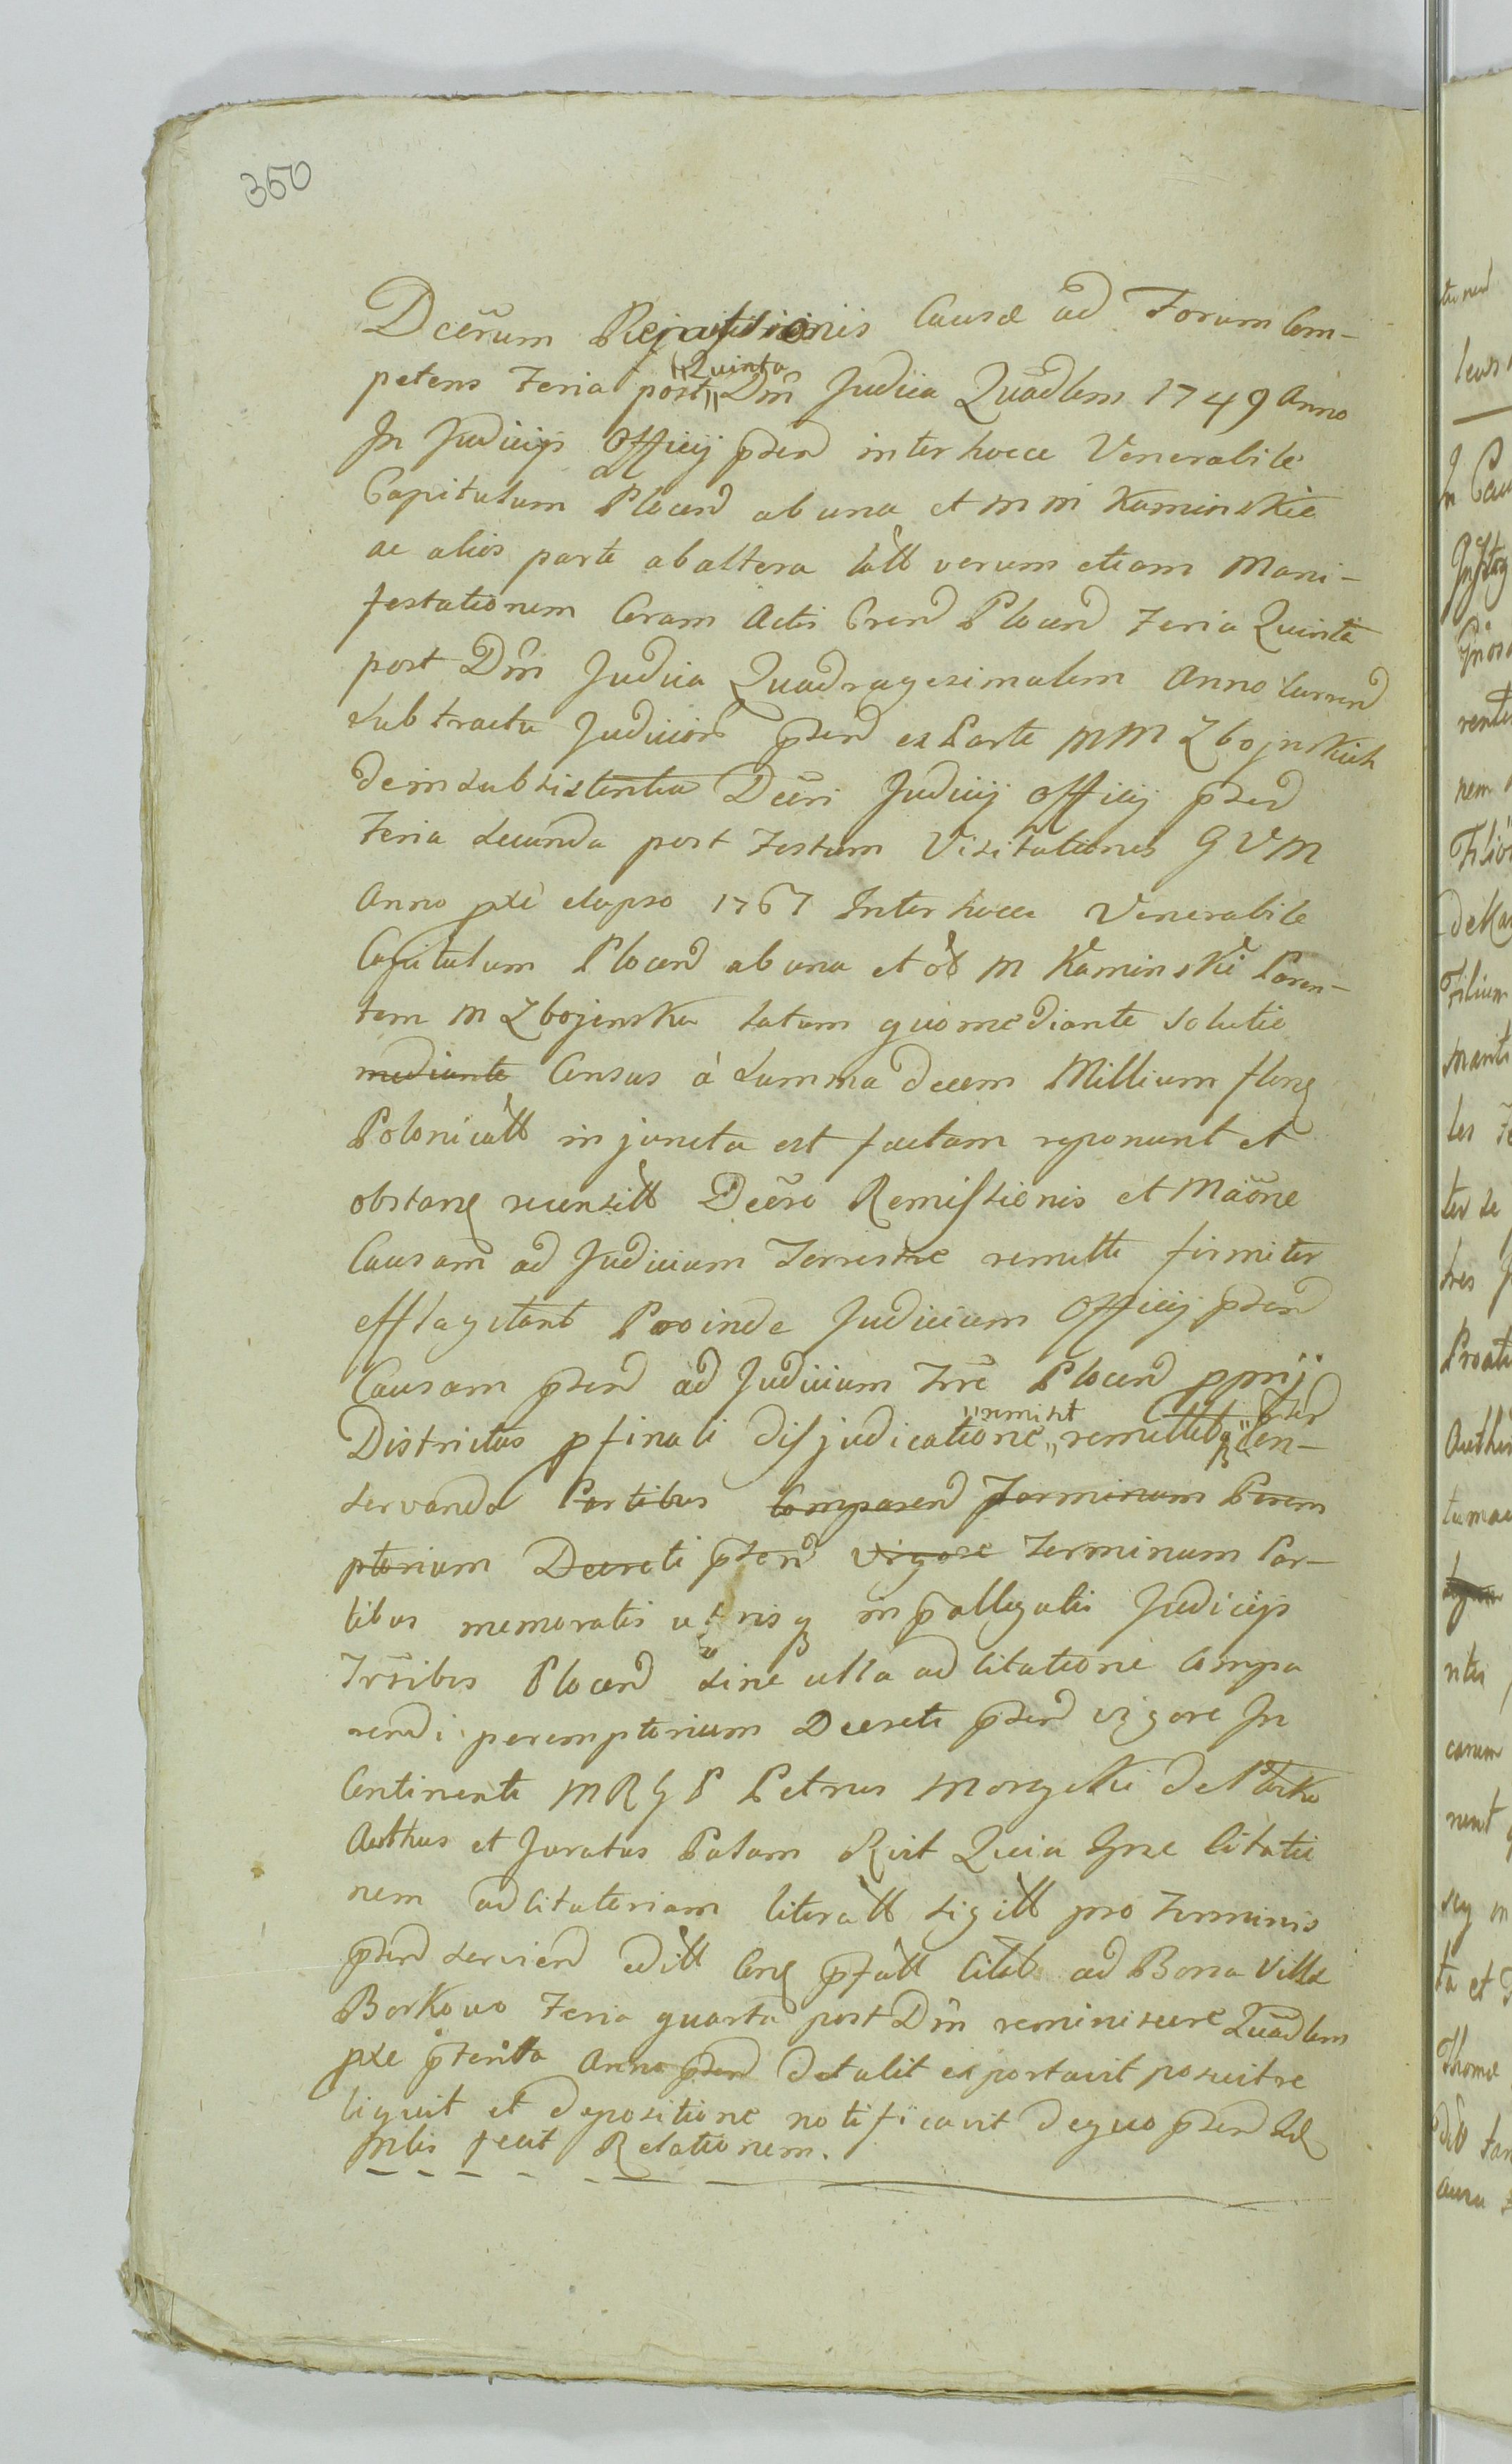 350
Decr̃um Rejectionis Causæ ad Forum Com-
petens Feria "Quinta
post" Dm̃ Judica Quãdlem 1749 Anno
In Judicijs Officij p̃sen inter hocce Venerabile
Capitulum Plocen ab una et M M Kaminskie
ac alios parte ab altera latt verum etiam Mani-
festationem Coram Actis Cren Plocen Feria Quinta
post Dm̃ Judica Quadragesimalem Anno Curren
sub tractu Judicior p̃sen ex Parte MM Zbojnskich
de insubsistentia Decri Judicij Officij p̃sen
Feria secunda post Festum Visitationis G V M
Anno pxe elapso 1767 Inter hocce Venerabile
Capitulum Plocen ab una et ol M Kaminski Paren-
tem M Zbojenska latum quomediante solutio
mediante Census à summa decem Millium floreň
Polonicatt injuncta est factam reponunt et
obstanq recensitt Decr̃o Remissionis et Mãone
Causam ad Judicium Terrestre remitti firmiter
efflagitant Proinde Judicium Officij p̃sen
Causam p̃sen ad Judicium Trre Plocen pprij
Districtus p finali disjudicatione "remisit remittit p̃sen Con-
servanda Partibus Comparen Terminum Perem
ptorium Decreti p̃sen vigore Terminum Par-
tibus memoratis utrisq in p̃allegatis Judicijs
Trr̃ibus Plocen sine ulla adcitatione Compa
rendi peremptorium Decreti p̃sen vigore In
Continenti M R G P Petrus de
Authus et Juratus Palam Rvit Quia Ipse Citatio
nem adcitatoriam literatt sigitt pro Terminis
p̃sen servien editt Conq p̃fatt Citat ad Bona Villæ
Borkowo Feria quarta post Dm̃ reminiscere Quãdlem
pxe p̃terita Anno p̃sen detulit exportavit posuit re
liquit et depositione notificavit de quo p̃sen
fecit Relationem.